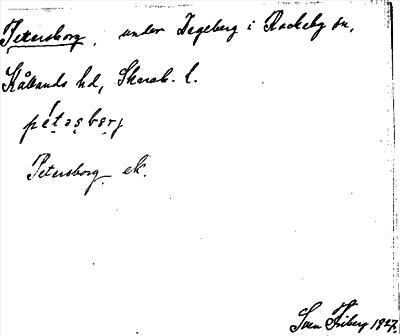 Petersborg, under Dageberg i Rackeby sn,
Kållands hd, Skarab. l.
pétəsbɛrj
Petersborg ek.
Sven Friberg 1927.